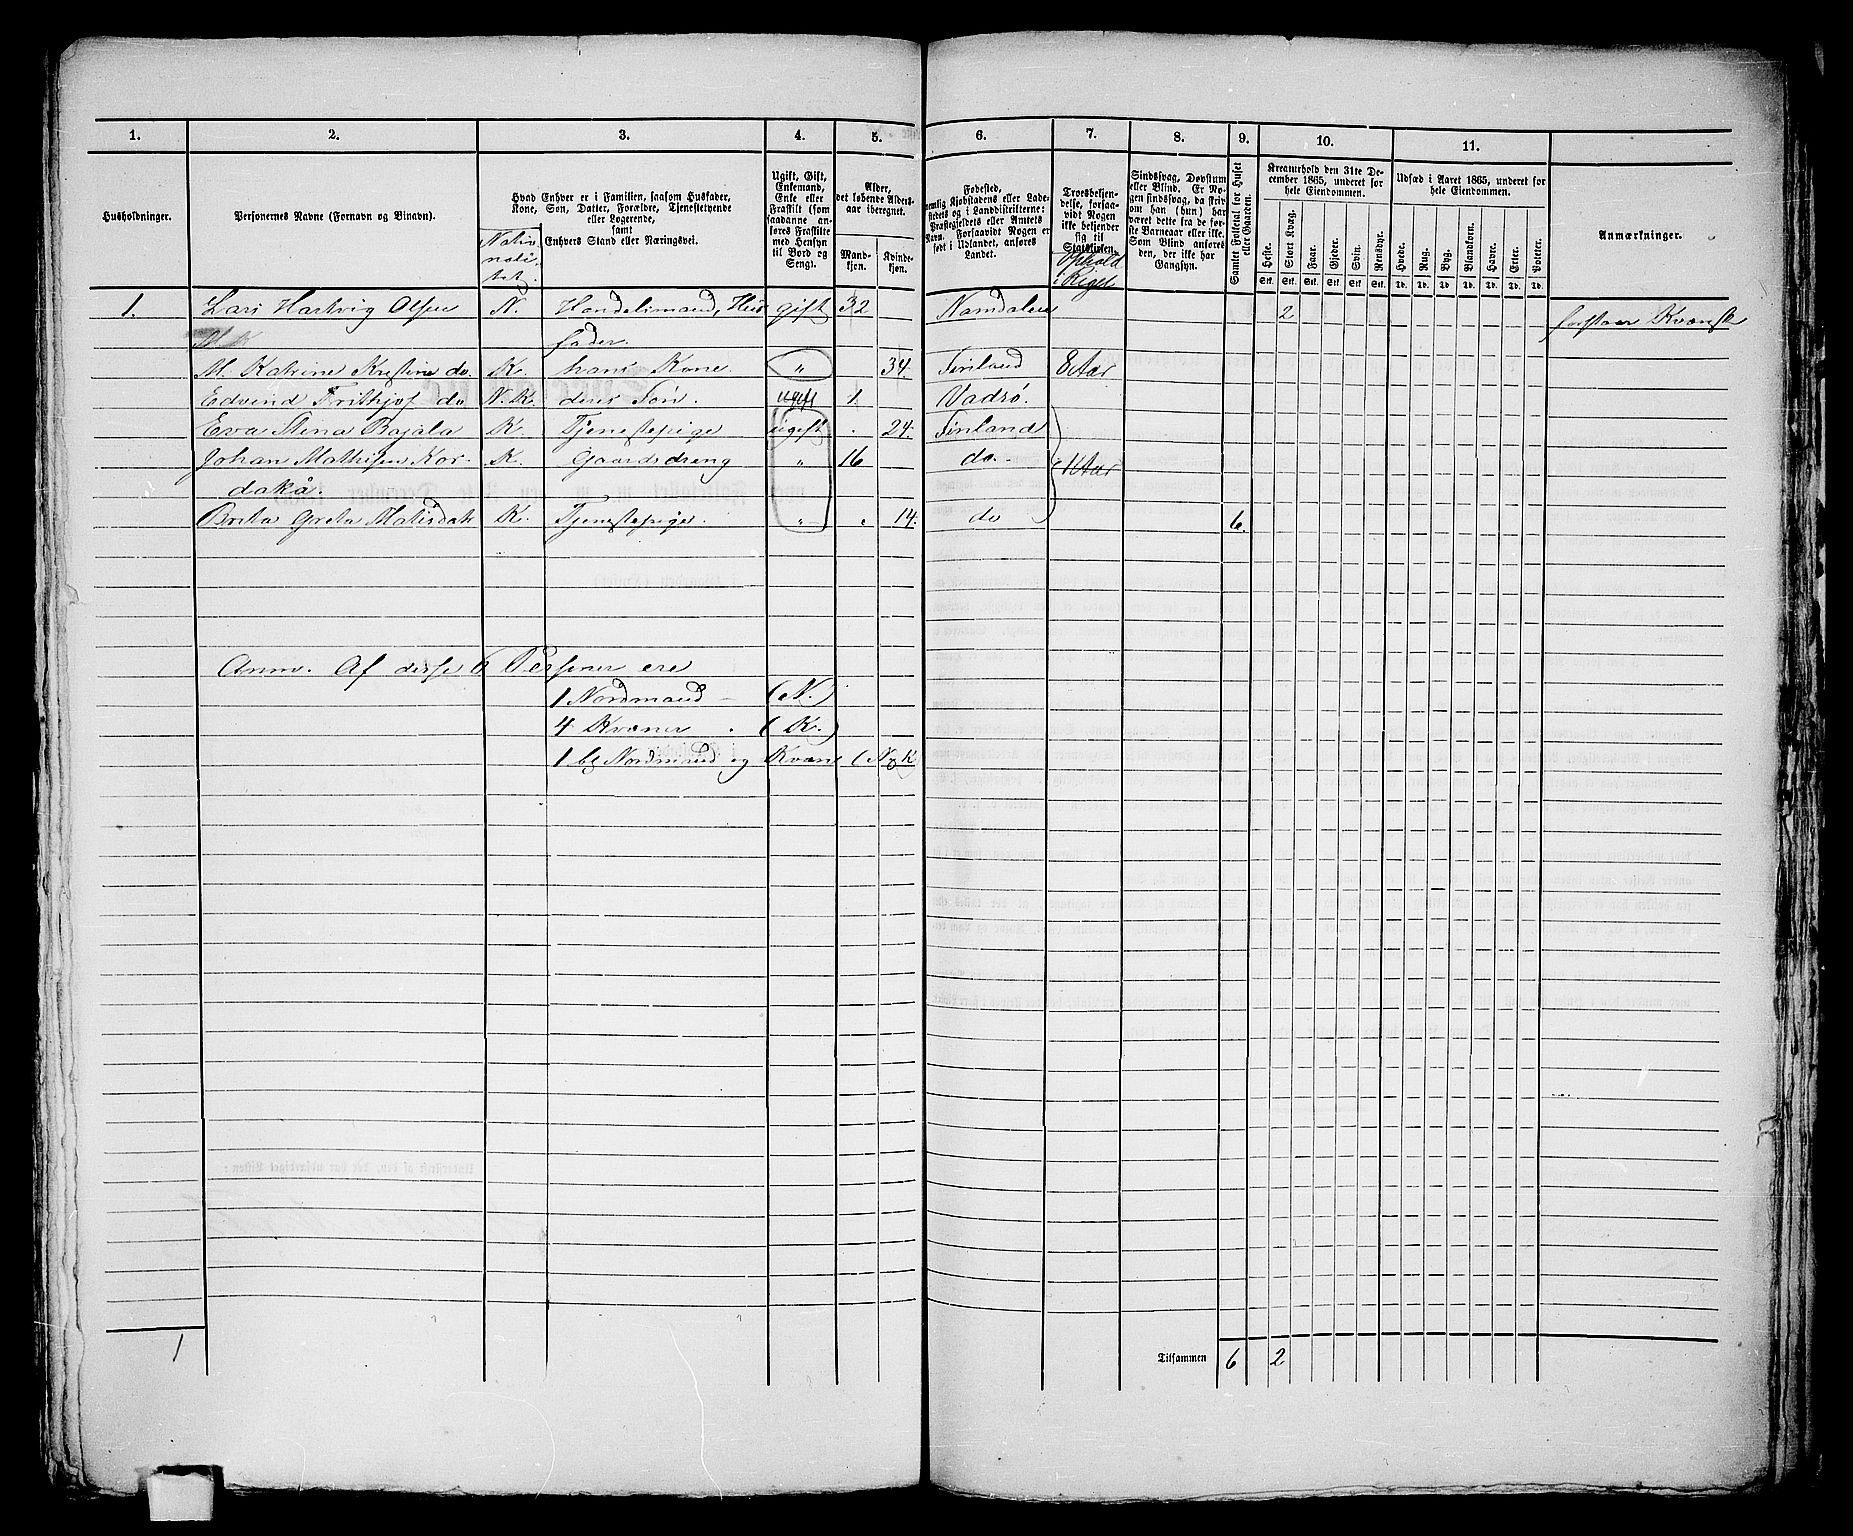 1. 2. 3. 4. 5. 6. 7. 8. 9. 10. 11.
Husholdninger.
Personernes Navne (Fornavn og Binavn).
Hvad Enhver er i Familien, saasom Husfader,
Kone, Søn, Datter, Forældre, Tjenestetyende
eller Logerende,
samt
Enhvers Stand eller Næringsvei.
Natio
nali-
tet.
Ugift, Gift,
Enkemand,
Enke eller
Fraskilt (som
saadanne an-
føres Fraskilte
med Hensyn
til Bord og
Seng).
Alder,
det løbende Alders-
aar iberegnet.
Mand-
kjøn.
Kvinde-
kjøn.
Fødested,
nemlig Kjøbstadens eller Lade-
stedets og i Landdistrikterne:
Præstegjeldets eller Amtets
Navn. Forsaavidt Nogen er
født i Udlandet, anføres
Landet.
Troesbekjen-
delse, forsaa-
vidt Nogen
ikke bekjender
sig til
Statskirken.
Ophold
i Riget
Sindssvag, Døvstum
eller Blind. Er No-
gen sindssvag, da skriv
om han (hun) har
været dette fra de før-
ste Barneaar eller ikke.
Som Blind anføres
den, der ikke har
Gangsyn.
Samlet Folketal for Huset
eller Gaarden.
Kreaturhold den 31te De-
cember 1865, underet for
hele Eiendommen.
Heste. Stort Kvæg. Faar. Gjeder. Svin. Rensdyr.
Stk. Stk. Stk. Stk. Stk. Stk.
Udsæd i Aaret 1865, underet for
hele Eiendommen.
Hvede. Rug. Byg. Blandkorn. Havre. Erter. Poteter.
Td. Td. Td. Td. Td. Td. Td.
Anmærkninger.
1. Lars Hartvig Olsen N. Handelsmand, Hus gift 32 Namdalen 2 forstaar Kvænsk
fader.
M. Katrine Kristine do. K. hans Kone. " 34. Finland 8 Aar
Edvind Frithjof do N.K. deres Søn. ugift 1. Vadsø.
Eva Stina Bajala K. Tjenestepige ugift . 24. Finland
Johan Mathisen Kor- K. Gaardsdreng " 16 do. 1 Aar
dakå.
Brita Greta Matisdatr K. Tjenestepige. " . 14. do 6.
Anm. Af disse 6 Personer ere
1 Nordmand - (N.)
4 Kvæner . (K.)
1 bl Nordmand og Kvæn (N.K
1
Tilsammen 6 2